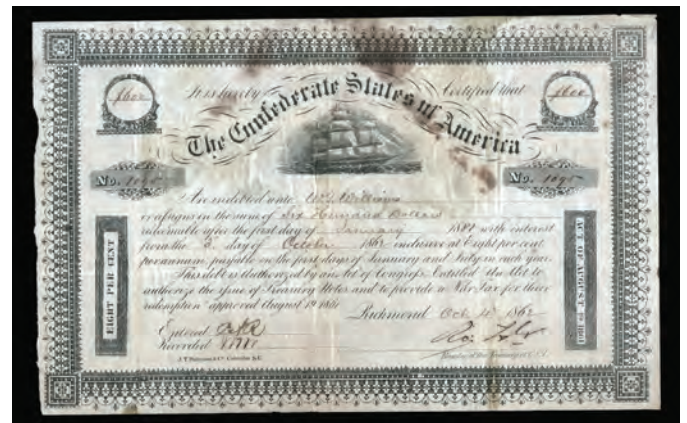 $600
It is hereby Certified that
$600
The Confederate States of America
No. 1095
No. 1095
Are indebted unto Williams
or assigns in the sum of Six Hundred Dollars
redeemable after the first day of January 1881 with interest
from the 2 day of October 1862 inclusive at Eight per cent
per annum, payable on the first days of January and July in each year.
This debt is authorized by an Act of Congress, Entitled "An Act to
authorize the issue of Treasury Notes and to provide a War Tax for their
redemption" approved August 19 1861
Richmond Oct 1862
Entered
Recorded
EIGHT PER CENT
ACT OF AUGUST 19 1861
Columbia S.C.
Register of the Treasury C.S.